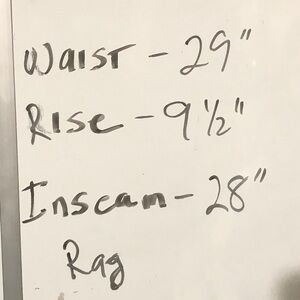 Waist - 29"
Rise - 9 ½"
Inseam - 28"
Rag